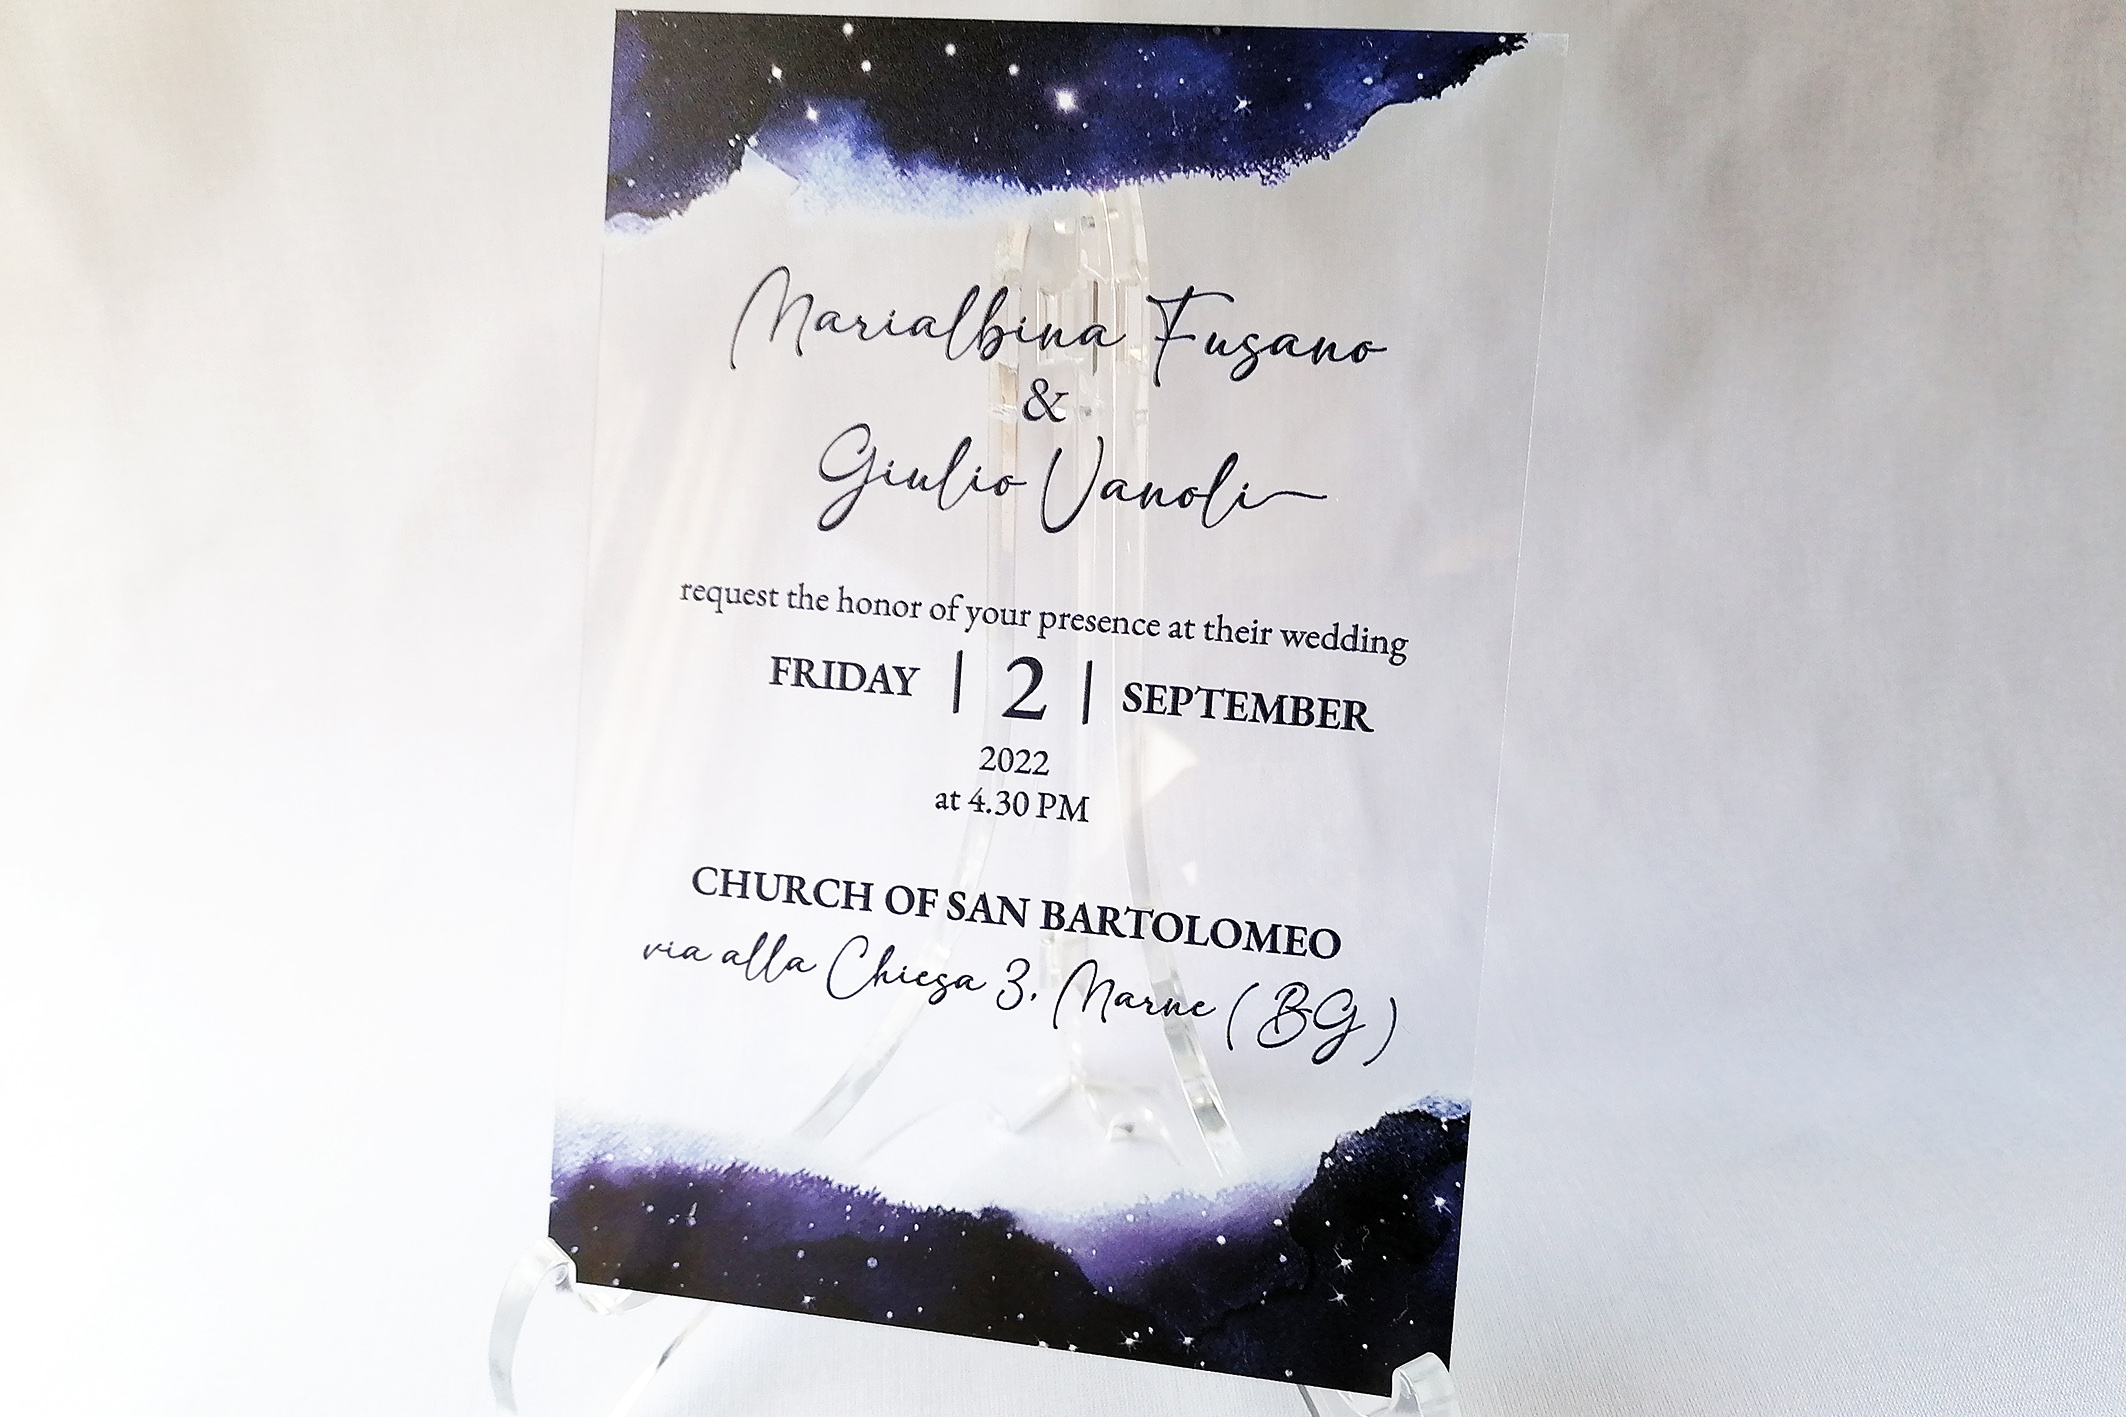 Marialbina Fusano
&
Giulio Vanoli
request the honor of your presence at their wedding
FRIDAY | 2 | SEPTEMBER
2022
at 4.30 PM
CHURCH OF SAN BARTOLOMEO
via alla Chiesa 3, Marne (BG)